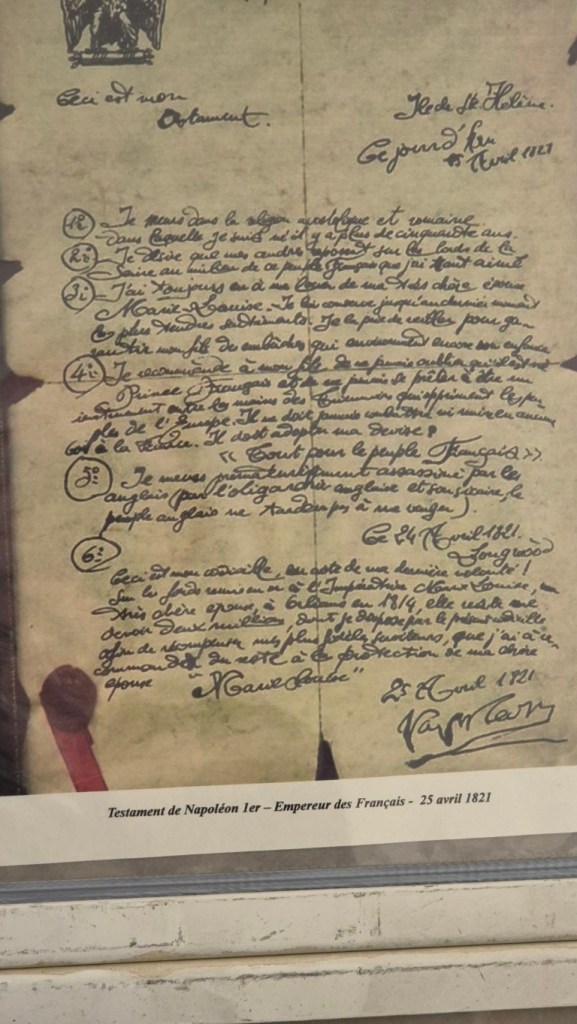 Ceci est mon
Testament.
Ile de Ste Hélène.
Ce jourd'hui
15 Avril 1821
1º Je meurs dans la religion apostolique et romaine
dans laquelle je suis né il y a plus de cinquante ans.
2º Je désire que mes cendres reposent sur les bords de la
Seine au milieu de ce peuple français que j'ai tant aimé
3º J'ai toujours eu à me louer de ma très chère épouse
Marie-Louise. Je lui conserve jusqu'au dernier moment
les plus tendres sentiments. Je la prie de veiller pour ga-
rantir mon fils des embûches qui environnent encore son enfance
4º Je recommande à mon fils de ne jamais oublier qu'il est né
Prince Français et de ne jamais se prêter à être un
instrument entre les mains des qui oppriment les peu
ples de l'Europe. Il ne doit jamais combattre ni nuire en aucune
à la France. Il doit adopter ma devise :
« Tout pour le peuple Français »
5º Je meurs prématurément assassiné par les
anglais (par l'oligarchie anglaise et son sicaire, le
peuple anglais ne tardera pas à me venger).
Ce 24 Avril 1821.
Longwood
6º
Ceci est mon codicille, ou acte de ma dernière volonté !
Sur les fonds remis en or à l'Impératrice Marie Louise, ma
très chère épouse, à Orléans en 1814, elle reste me
devoir deux millions, dont je dispose par le présent codicille
afin de récompenser mes plus fidèles serviteurs, que j'ai à re
commander du reste à la protection de ma chère
épouse "Marie Louise"
25 Avril 1821
Testament de Napoléon 1er – Empereur des Français - 25 avril 1821